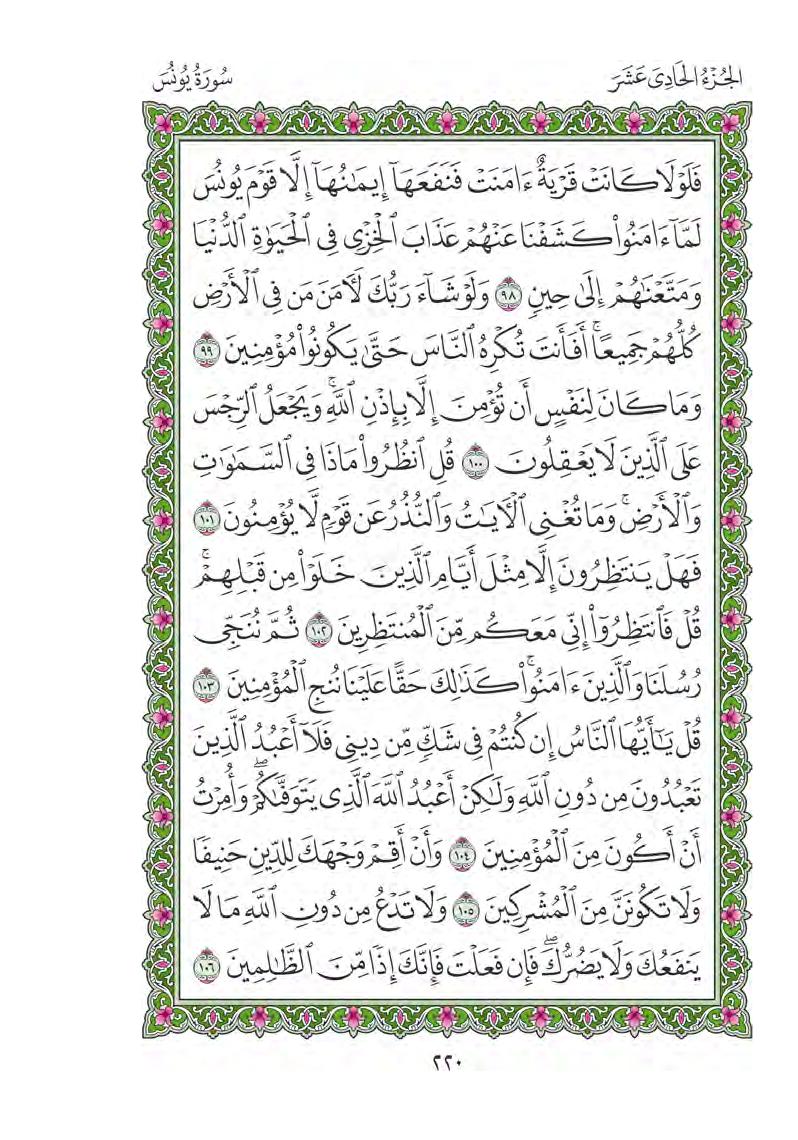 الجُزْءُ الحَادِىَ عَشَرَ
سُورَةُ يُونُسَ
فَلَوْلَا كَانَتْ قَرْيَةٌ ءَامَنَتْ فَنَفَعَهَآ إِيمَٰنُهَآ إِلَّا قَوْمَ يُونُسَ
لَمَّآ ءَامَنُوا۟ كَشَفْنَا عَنْهُمْ عَذَابَ ٱلْخِزْىِ فِى ٱلْحَيَوٰةِ ٱلدُّنْيَا
وَمَتَّعْنَٰهُمْ إِلَىٰ حِينٍ ٩٨ وَلَوْ شَآءَ رَبُّكَ لَءَامَنَ مَن فِى ٱلْأَرْضِ
كُلُّهُمْ جَمِيعًا ۚ أَفَأَنتَ تُكْرِهُ ٱلنَّاسَ حَتَّىٰ يَكُونُوا۟ مُؤْمِنِينَ ٩٩
وَمَا كَانَ لِنَفْسٍ أَن تُؤْمِنَ إِلَّا بِإِذْنِ ٱللَّهِ ۚ وَيَجْعَلُ ٱلرِّجْسَ
عَلَى ٱلَّذِينَ لَا يَعْقِلُونَ ١٠٠ قُلِ ٱنظُرُوا۟ مَاذَا فِى ٱلسَّمَٰوَٰتِ
وَٱلْأَرْضِ ۚ وَمَا تُغْنِى ٱلْءَايَٰتُ وَٱلنُّذُرُ عَن قَوْمٍ لَّا يُؤْمِنُونَ ١٠١
فَهَلْ يَنتَظِرُونَ إِلَّا مِثْلَ أَيَّامِ ٱلَّذِينَ خَلَوْا۟ مِن قَبْلِهِمْ ۚ
قُلْ فَٱنتَظِرُوٓا۟ إِنِّى مَعَكُم مِّنَ ٱلْمُنتَظِرِينَ ١٠٢ ثُمَّ نُنَجِّى
رُسُلَنَا وَٱلَّذِينَ ءَامَنُوا۟ ۚ كَذَٰلِكَ حَقًّا عَلَيْنَا نُنجِ ٱلْمُؤْمِنِينَ ١٠٣
قُلْ يَٰٓأَيُّهَا ٱلنَّاسُ إِن كُنتُمْ فِى شَكٍّ مِّن دِينِى فَلَآ أَعْبُدُ ٱلَّذِينَ
تَعْبُدُونَ مِن دُونِ ٱللَّهِ وَلَٰكِنْ أَعْبُدُ ٱللَّهَ ٱلَّذِى يَتَوَفَّىٰكُمْ ۖ وَأُمِرْتُ
أَنْ أَكُونَ مِنَ ٱلْمُؤْمِنِينَ ١٠٤ وَأَنْ أَقِمْ وَجْهَكَ لِلدِّينِ حَنِيفًا
وَلَا تَكُونَنَّ مِنَ ٱلْمُشْرِكِينَ ١٠٥ وَلَا تَدْعُ مِن دُونِ ٱللَّهِ مَا لَا
يَنفَعُكَ وَلَا يَضُرُّكَ ۖ فَإِن فَعَلْتَ فَإِنَّكَ إِذًا مِّنَ ٱلظَّٰلِمِينَ ١٠٦
٢٢٠